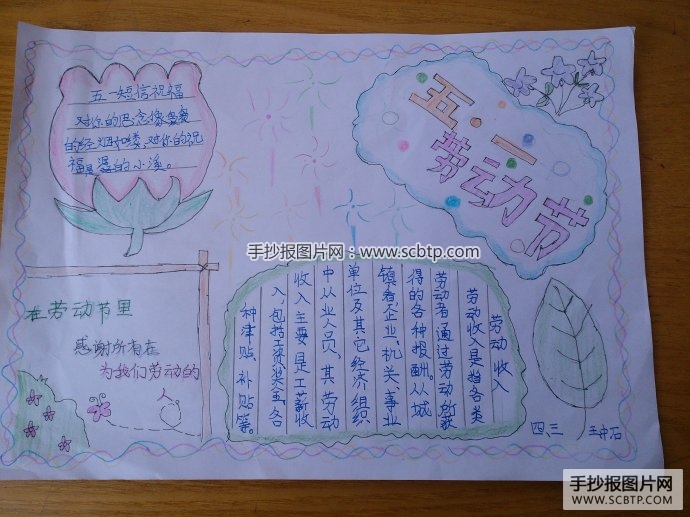 五一短信祝福
对你的思念像袅袅
的轻烟不喽,对你的祝
福是温的小溪。
五.一
劳动节
手抄报图片网:www.scbtp.com
在劳动节里
感谢所有在
为我们劳动的
人
劳动收入
劳动收入是指各类
劳动者通过劳动所获
得的各种报酬。从城
镇看,企业、机关、事业
单位及其它经济组织
中从业人员,其劳动
收入主要是工薪收
入,包括工资、奖金、各
种津贴、补贴等。
四、三
手抄报图片网
WWW.SCBTP.COM